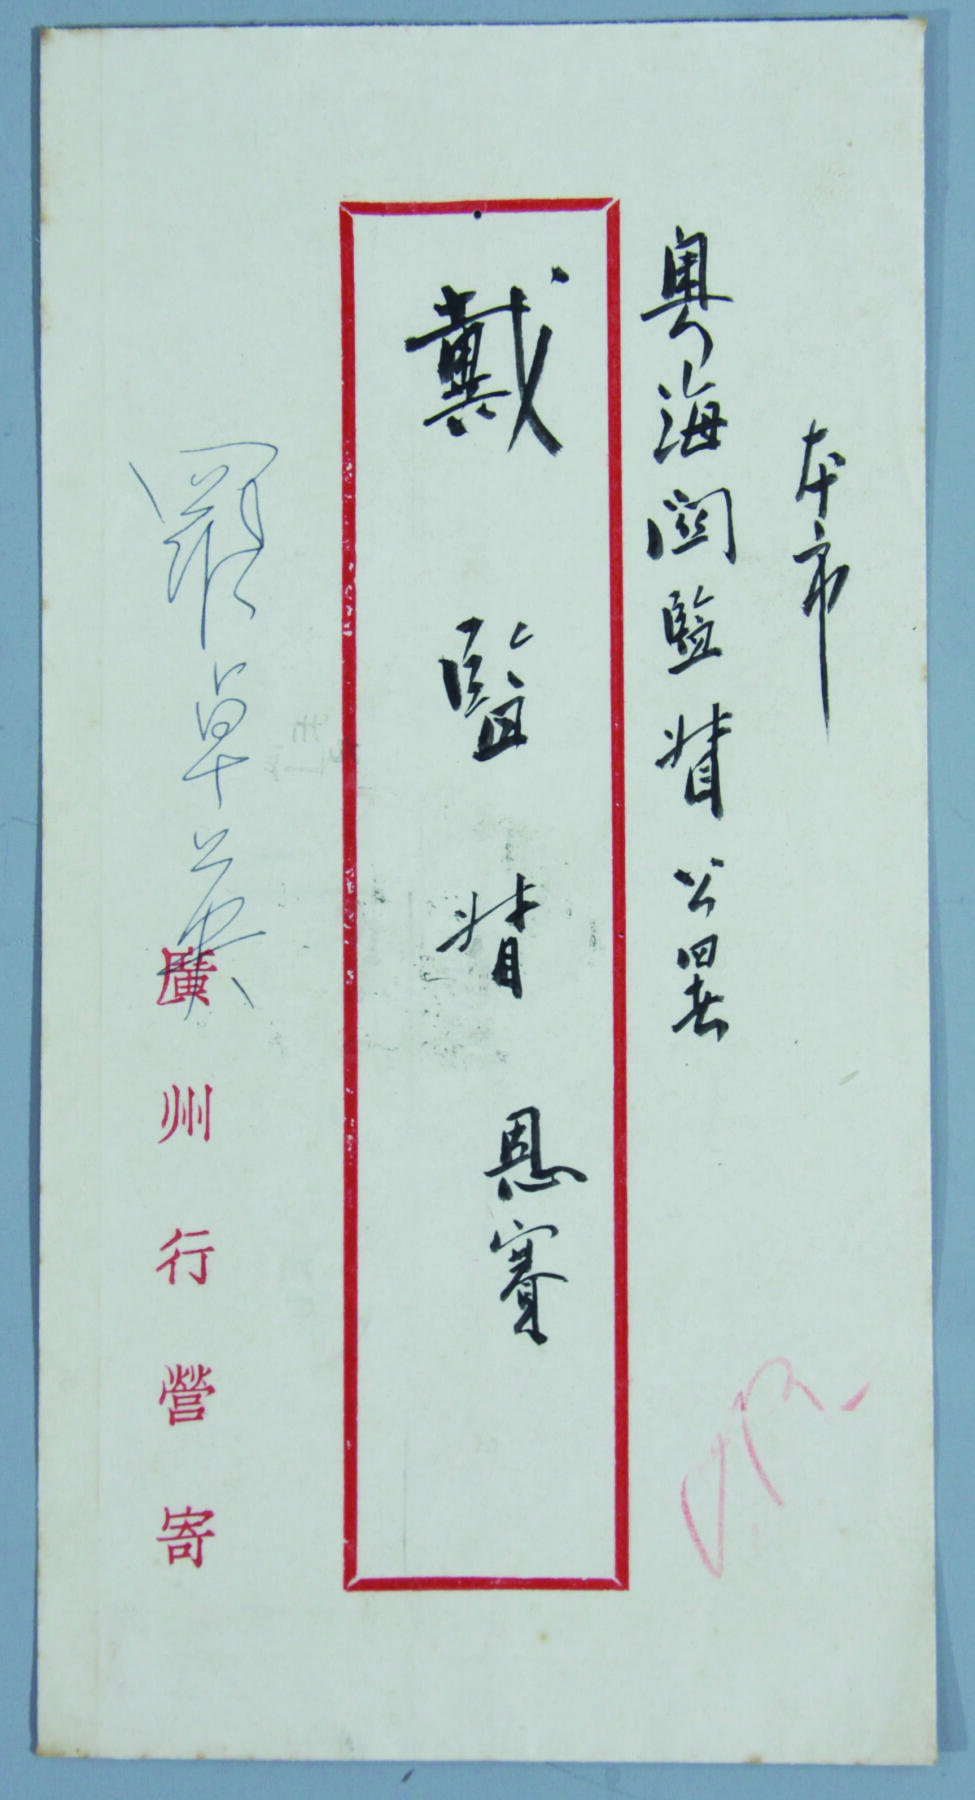 本市
粤海關監督公署
戴監督恩賽
羅卓英
廣州行營寄